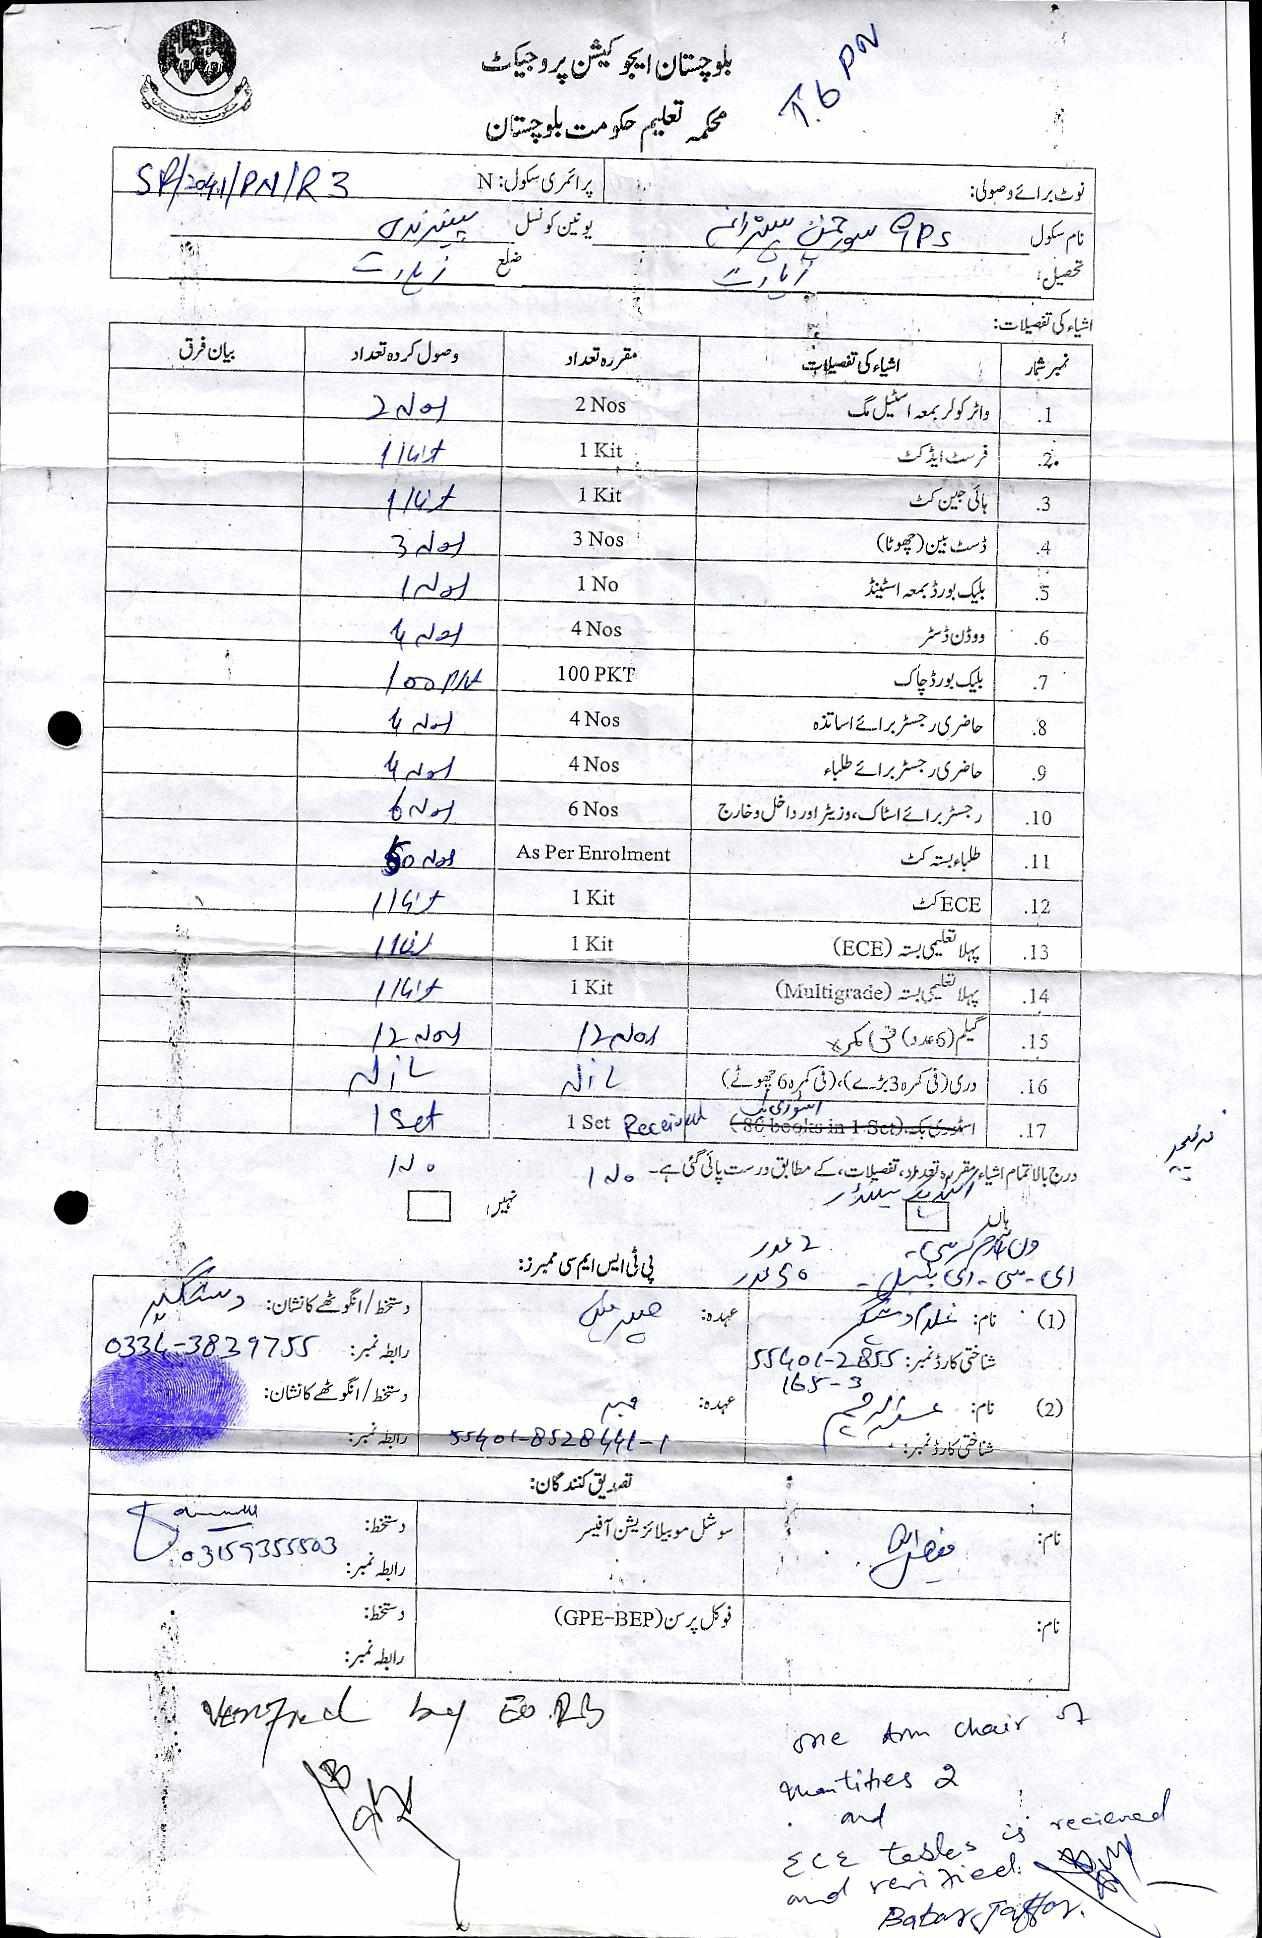 بلوچستان ایجوکیشن پروجیکٹ
T.6 PN
محکمہ تعلیم حکومت بلوچستان
نوٹ برائے وصولی: پرائمری سکول: N SP/2041/PN/R3
نام سکول GPS یونین کونسل
تحصیل: زیارت ضلع زیارت
اشیاء کی تفصیلات:
نمبر شمار اشیاء کی تفصیلات مقررہ تعداد وصول کردہ تعداد بیان فرق
1. واٹر کولر بمعہ اسٹیل مگ 2 Nos 2 Nos
2. فرسٹ ایڈ کٹ 1 Kit 1 Kit
3. ہائی جین کٹ 1 Kit 1 Kit
4. ڈسٹ بین (چھوٹا) 3 Nos 3 Nos
5. بلیک بورڈ بمعہ اسٹینڈ 1 No 1 Nos
6. ووڈن ڈسٹر 4 Nos 4 Nos
7. بلیک بورڈ چاک 100 PKT 100 PKt
8. حاضری رجسٹر برائے اساتذہ 4 Nos 4 Nos
9. حاضری رجسٹر برائے طلباء 4 Nos 4 Nos
10. رجسٹر برائے اسٹاک، وزیٹر اور داخل و خارج 6 Nos 6 Nos
11. طلباء بستہ کٹ As Per Enrolment 50 Nos
12. ECE کٹ 1 Kit 1 Kit
13. پہلا تعلیمی بستہ (ECE) 1 Kit 1 Kit
14. پہلا تعلیمی بستہ (Multigrade) 1 Kit 1 Kit
15. گلیم (6 عدد) فی کمرہ 12 Nos 12 Nos
16. دری (فی کمرہ 3 بڑے)، (فی کمرہ 6 چھوٹے) Nil Nil
اسٹوری بک
17. اسٹوری بک (80 books in 1 Set) 1 Set Received 1 Set
درج بالا تمام اشیاء مقررہ تعداد، تفصیلات، کے مطابق درست پائی گئی ہے۔ 1 No 1 No
ہاں نہیں:
ون آرم کرسی۔ 2 عدد
ای۔سی۔ای ٹیبل۔ 50 عدد
پی ٹی ایس ایم سی ممبرز:
(1) نام: غلام دستگیر عہدہ: چیئرمین دستخط/انگوٹھے کا نشان: دستگیر
شناختی کارڈ نمبر: 55401-2855 رابطہ نمبر: 0334-3829755
165-3
(2) نام: عبدالرحیم عہدہ: ممبر دستخط/انگوٹھے کا نشان:
شناختی کارڈ نمبر: 55401-8528441-1 رابطہ نمبر:
تصدیق کنندگان:
نام: سوشل موبیلائزیشن آفیسر دستخط:
رابطہ نمبر: 03159355503
نام: فوکل پرسن (GPE-BEP) دستخط:
رابطہ نمبر:
Verified by
one Arm chair of
quantities 2
and
ECE tables is recieved
and verified.
Babar Jaffar.